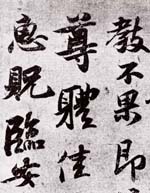 教不果即
尊體佳
惠貺臨安